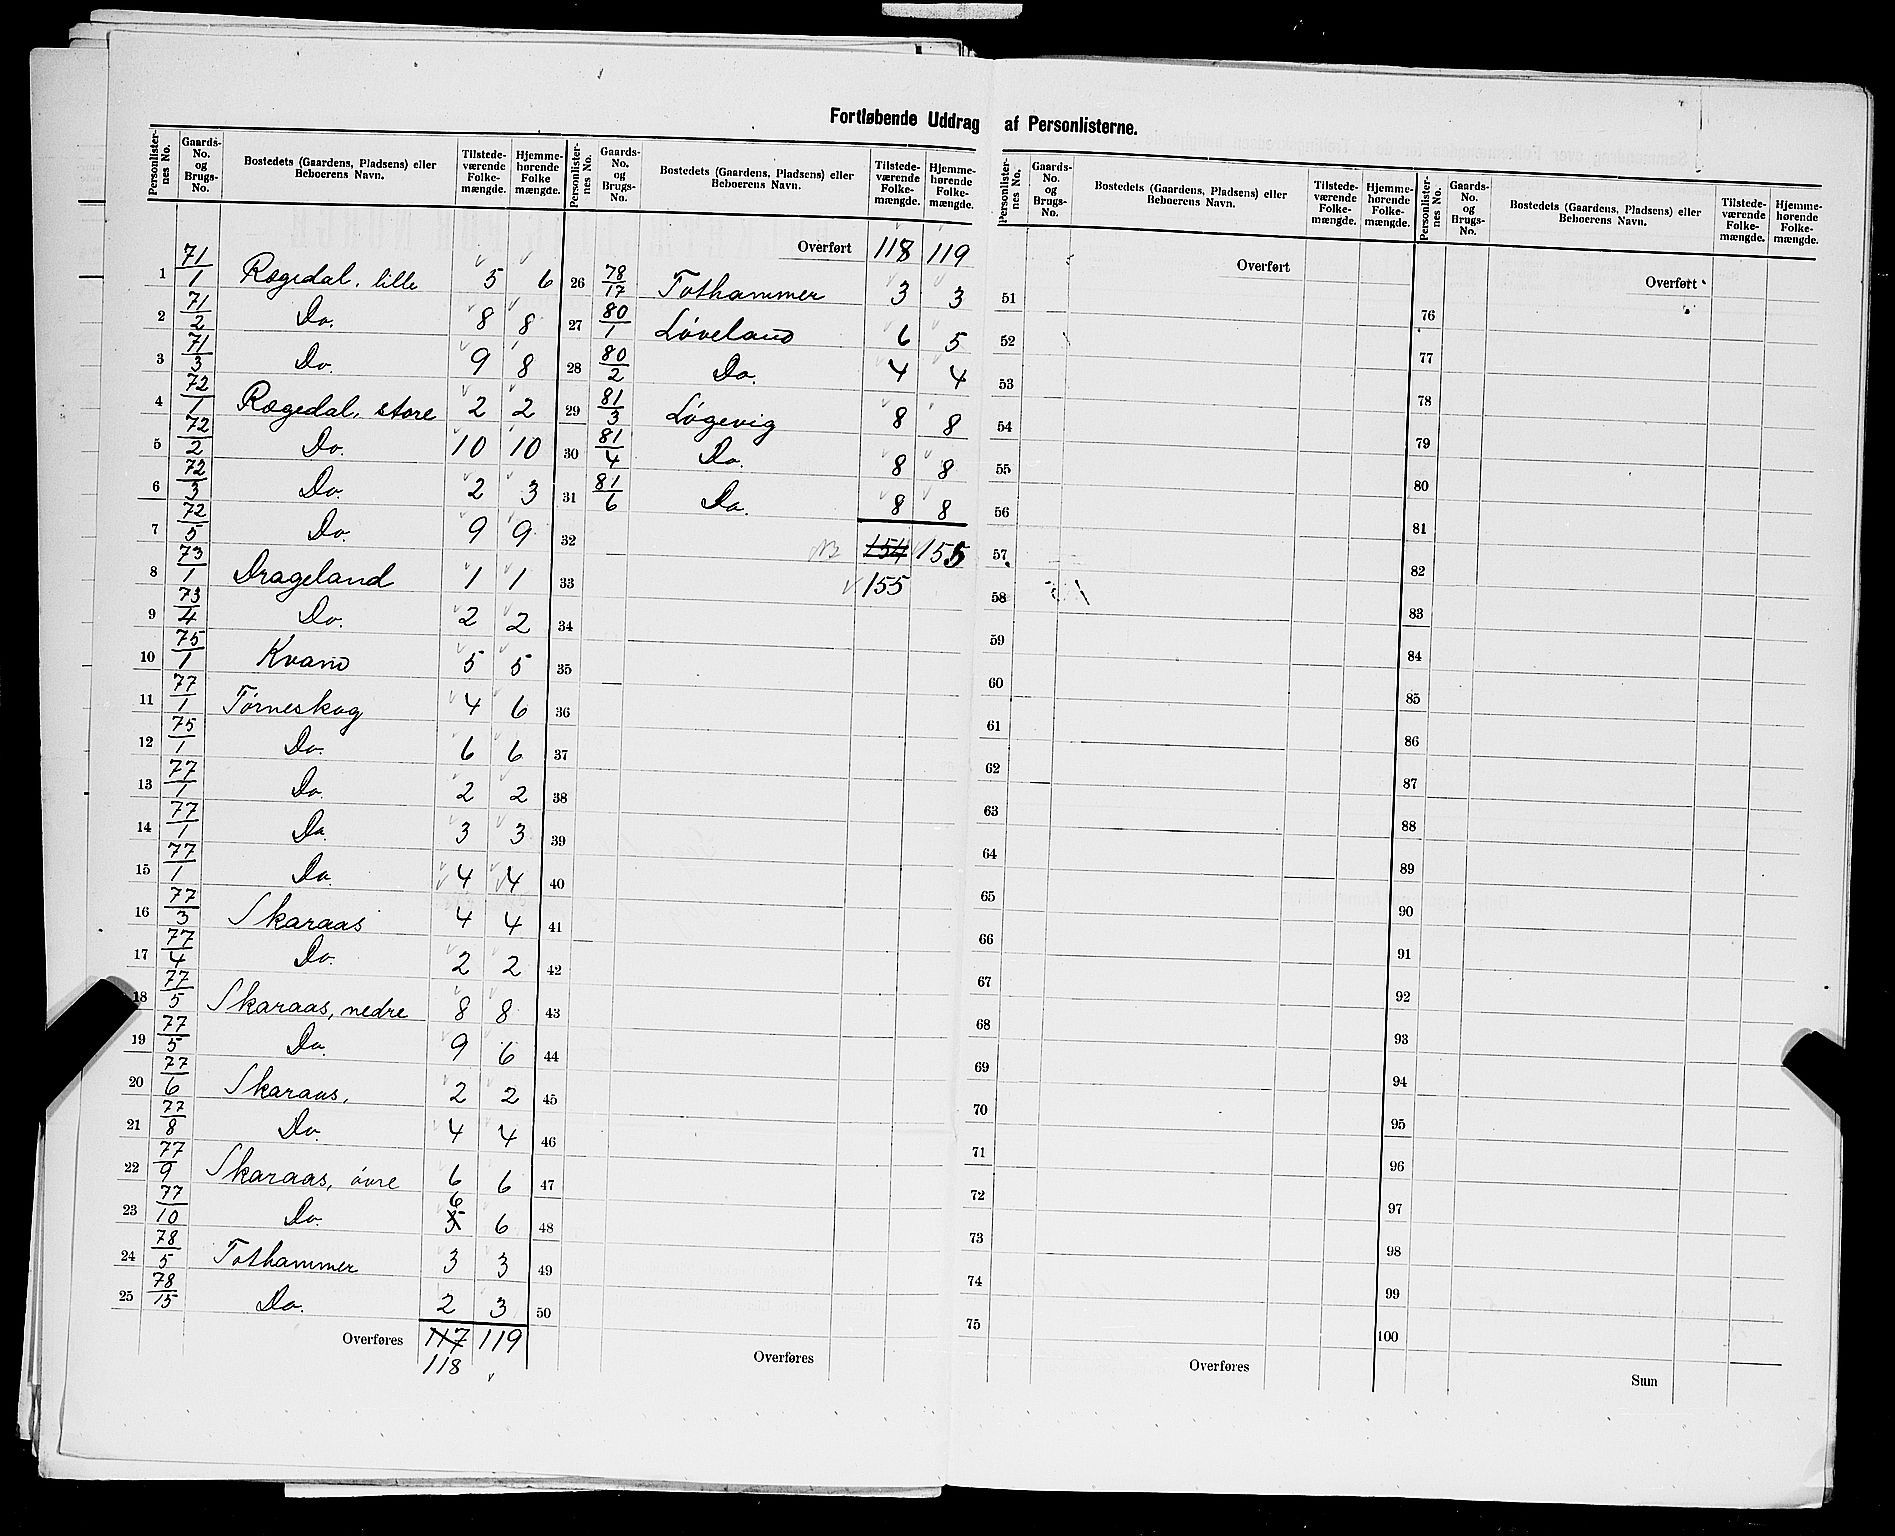 Fortløbende Uddrag af Personlisterne.
Personlister-nes No. | Gaards-No. og Brugs-No. | Bostedets (Gaardens, Pladsens) eller Beboerens Navn. | Tilstede-værende Folke-mængde. | Hjemme-hørende Folke mængde.
1 71/1 Rægedal, lille 5 6
2 71/2 Do. 8 8
3 71/3 Do. 9 8
4 72/1 Rægedal, store 2 2
5 72/2 Do. 10 10
6 72/3 Do. 2 3
7 72/5 Do. 9 9
8 73/1 Drageland 1 1
9 73/4 Do. 2 2
10 75/1 Kvand 5 5
11 77/1 Tørneskog 4 6
12 75/1 Do. 6 6
13 77/1 Do. 2 2
14 77/1 Do. 3 3
15 77/1 Do. 4 4
16 77/3 Skaraas 4 4
17 77/4 Do. 2 2
18 77/5 Skaraas, nedre 8 8
19 77/5 Do. 9 6
20 77/6 Skaraas, 2 2
21 77/8 Do. 4 4
22 77/9 Skaraas, övre 6 6
23 77/10 Do. 5 6 6
24 78/5 Tothammer 3 3
25 78/15 Do. 2 3
Overføres 117 119
118
Personlister-nes No. | Gaards-No. og Brugs-No. | Bostedets (Gaardens, Pladsens) eller Beboerens Navn. | Tilstede-værende Folke-mængde. | Hjemme-hørende Folke-mængde.
Overført 118 119
26 78/17 Tothammer 3 3
27 80/1 Løveland 6 5
28 80/2 Do. 4 4
29 81/3 Løgevig 8 8
30 81/4 Do. 8 8
31 81/6 Do. 8 8
32 154 155
33 155
34
35
36
37
38
39
40
41
42
43
44
45
46
47
48
49
50
Overføres
Personlister-nes No. | Gaards-No. og Brugs-No. | Bostedets (Gaardens, Pladsens) eller Beboerens Navn. | Tilstede-værende Folke-mængde. | Hjemme-hørende Folke-mængde.
Overført
51
52
53
54
55
56
57
58
59
60
61
62
63
64
65
66
67
68
69
70
71
72
73
74
75
Overføres
Personlister-nes No. | Gaards-No. og Brugs-No. | Bostedets (Gaardens, Pladsens) eller Beboerens Navn. | Tilstede-værende Folke-mængde. | Hjemme-hørende Folke-mængde.
Overført
76
77
78
79
80
81
82
83
84
85
86
87
88
89
90
91
92
93
94
95
96
97
98
99
100
Sum